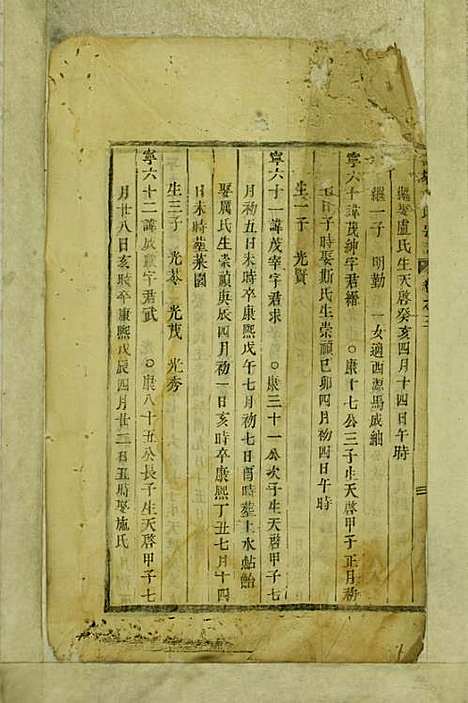 盧氏生天啓癸亥四月十四日午時
繼一子 明勤 一女適西源馬成紬
寧六十諱茂紳字君 康十七公三子生天啓甲子正月初
日子時娶斯氏生崇禎己卯四月初四日午時
生一子 光賢
寧六十一諱茂宰字君求 ○康三十一公次子生天啓甲子七
月初五日未時卒康熙戊午七月初七日酉時葬上水帖飴
娶厲氏生崇禎庚辰四月初一日亥時卒康熙丁丑七月十四
日未時葬菜園
生三子 光 光茂 光秀
寧六十二諱成 字君武 ○康八十五公長子生天啓甲子七
月廿八日亥時卒康熙戊辰四月廿二日丑時娶施氏